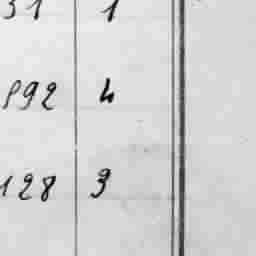 31 1
892 4
128 3